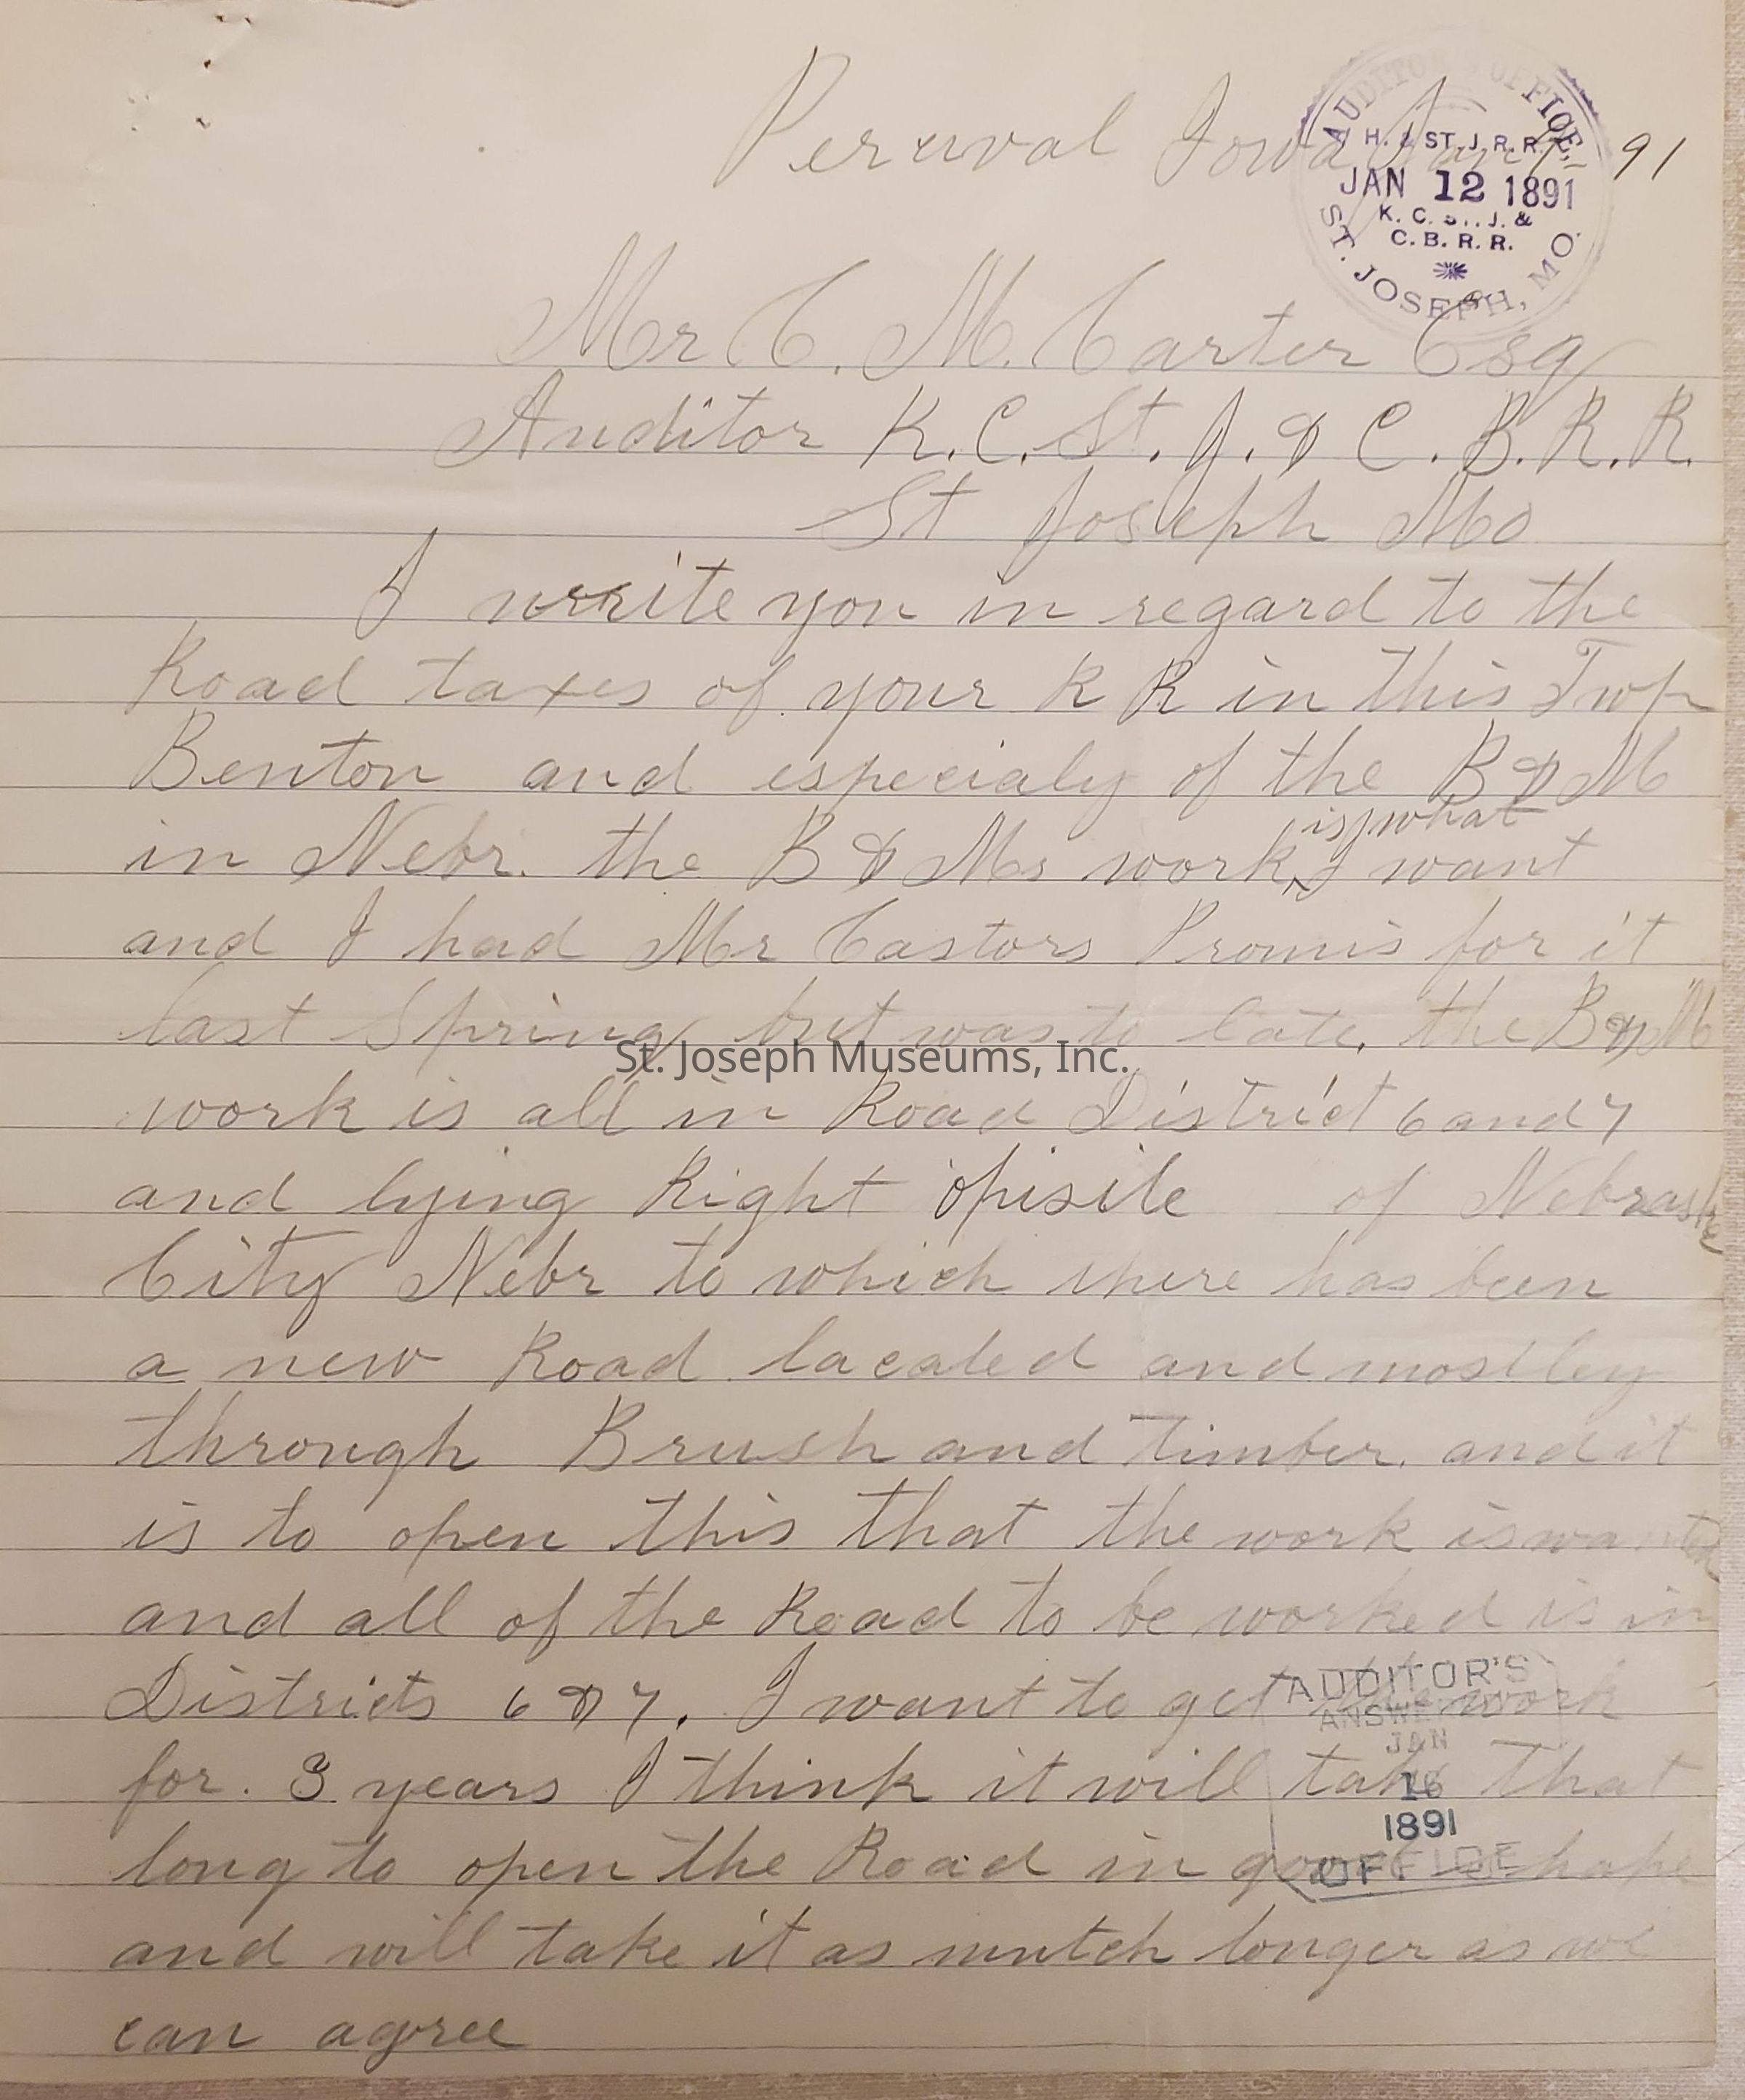 Percival Iowa Jan 91
AUDITOR'S OFFICE
H. & ST. J. R. R.
JAN 12 1891
K. C. ST. J. &
C. B. R. R.
ST. JOSEPH, MO.
Mr C. M. Carter Esq
Auditor K. C. St. J. & C. B. R. R.
St Joseph Mo
I write you in regard to the
Road taxes of your R R in this Twp
Benton and especialy of the B & M
in Nebr. the B & Ms work is what I want
and I had Mr Castors Promis for it
last Spring but was to late, the B & M
St. Joseph Museums, Inc.
work is all in Road District 6 and 7
and lying Right opisite of Nebraska
City Nebr to which there has been
a new Road lacated and mostley
through Brush and Timber. and it
is to open this that the work is wanted
and all of the Road to be worked is in
Districts 6 & 7. I want to get the work
for. 3 years I think it will take that
long to open the Road in good shape
and will take it as mutch longer as we
can agree
AUDITOR'S
ANSWERED
JAN
16
1891
OFFICE